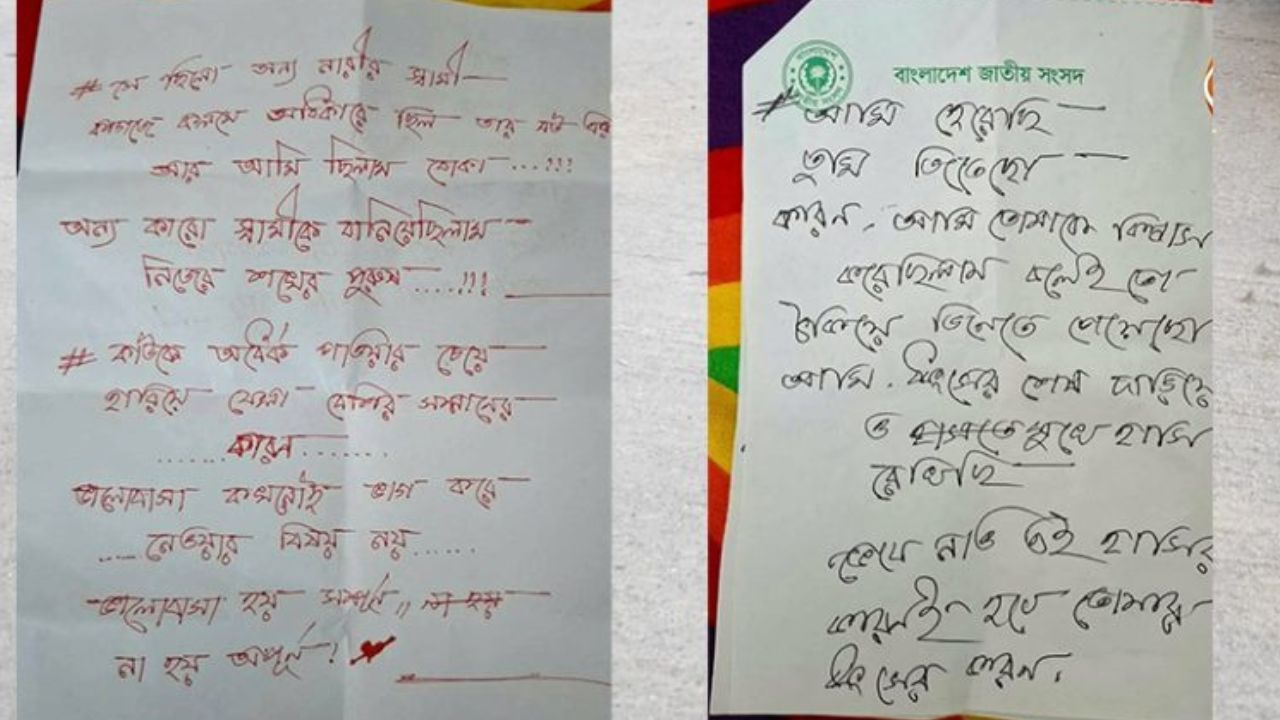 # সে ছিলো অন্য নারীর স্বামী—
কাগজে কলমে অধিকারে ছিল তার
আর আমি ছিলাম বোকা ...!!!
অন্য কারো স্বামীকে বানিয়েছিলাম —
নিজের শখের পুরুষ ....!!!
# কাউকে অর্ধেক পাওয়ার চেয়ে
হারিয়ে ফেলা বেশির সম্মানের
...... কারন .......
ভালোবাসা কখনোই ভাগ করে
.... নেওয়ার বিষয় নয় .....
ভালোবাসা হয় সম্পূর্ণ,,
না হয় অপূর্ন !
বাংলাদেশ
বাংলাদেশ জাতীয় সংসদ
# আমি হেরেছি —
তুমি জিতেছো —
কারন, আমি তোমাকে বিশ্বাস
করেছিলাম বলেই তো
ঠকিয়ে জিততে পেরেছো
আমি, ধ্বংসের শেষ দাড়িয়ে
ও মুখে হাসি
রেখেছি —
জেনে নাও এই হাসির
কারনই হবে তোমার
ধ্বংসের কারন।